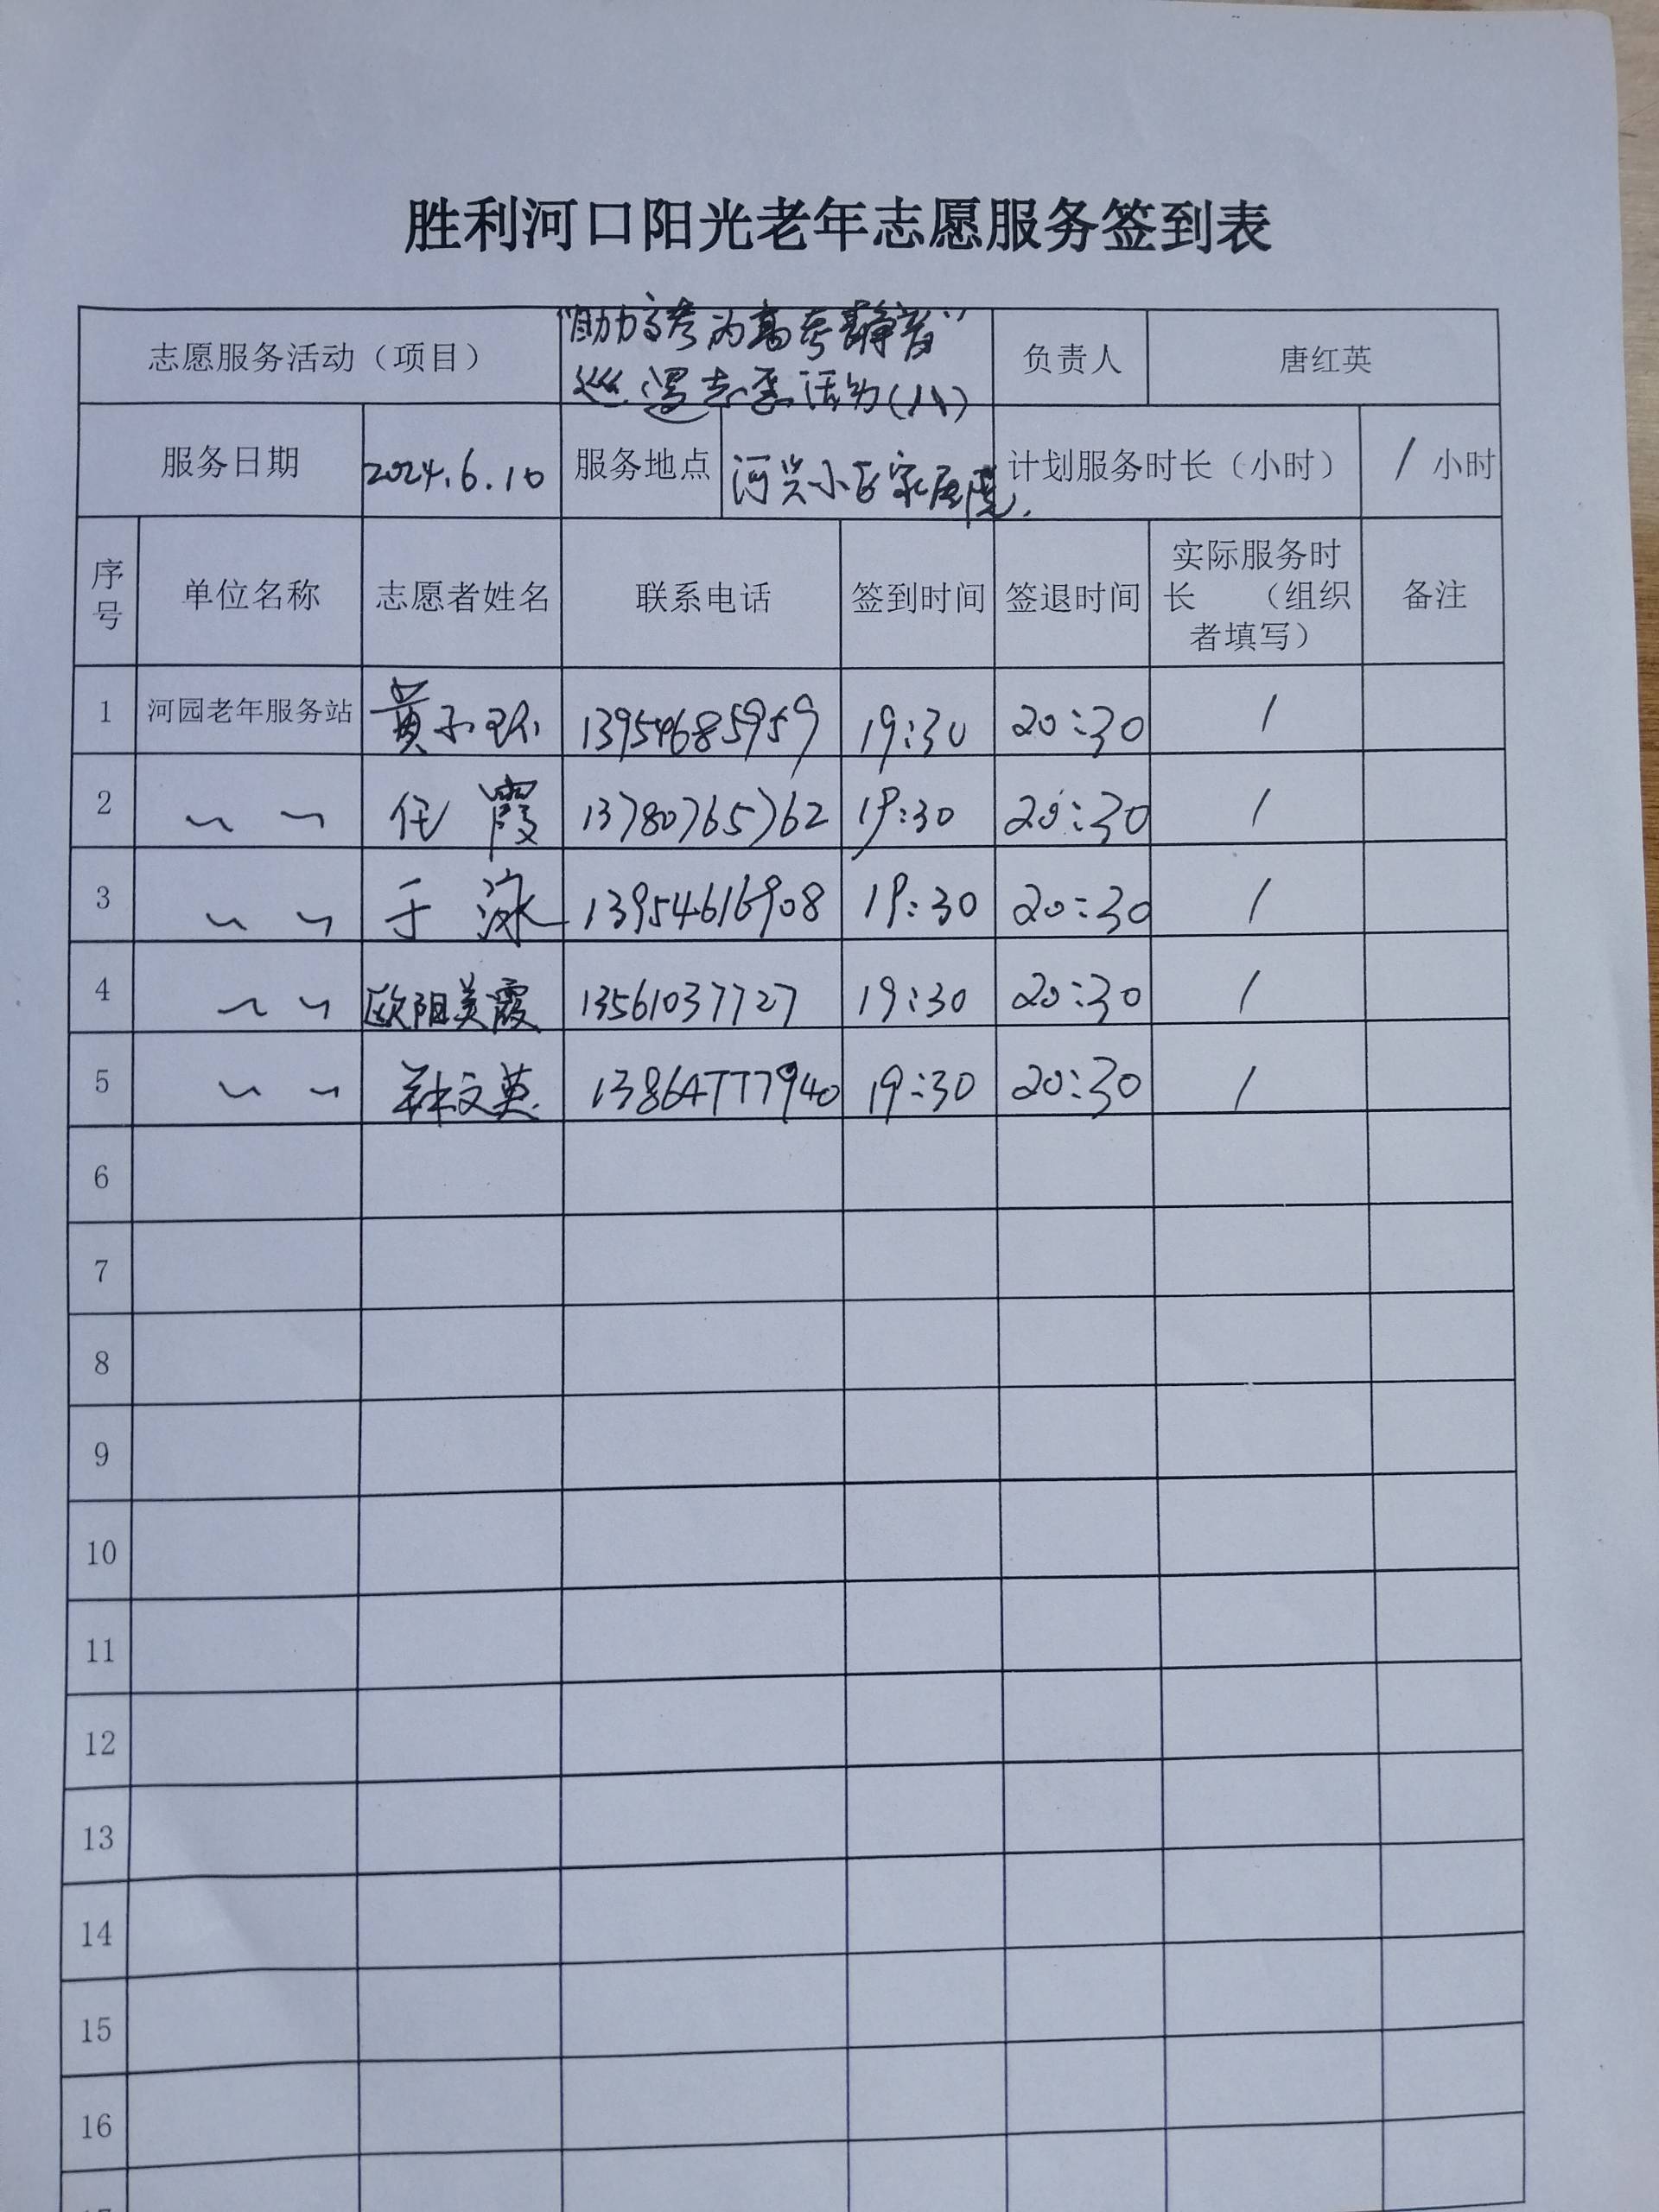 胜利河口阳光老年志愿服务签到表
志愿服务活动（项目） "助力高考为高考静音" 负责人 唐红英
巡逻志愿活动(八)
服务日期 2024.6.10 服务地点 河兴小区家属院. 计划服务时长（小时） 1 小时
序号 单位名称 志愿者姓名 联系电话 签到时间 签退时间 实际服务时长 （组织者填写） 备注
1 河园老年服务站 黄 13954685959 19:30 20:30 1
2 〃 〃 任霞 13780765762 19:30 20:30 1
3 〃 〃 于泳 13954616908 19:30 20:30 1
4 〃 〃 欧阳美霞 13561037727 19:30 20:30 1
5 〃 〃 文英 13864777940 19:30 20:30 1
6
7
8
9
10
11
12
13
14
15
16